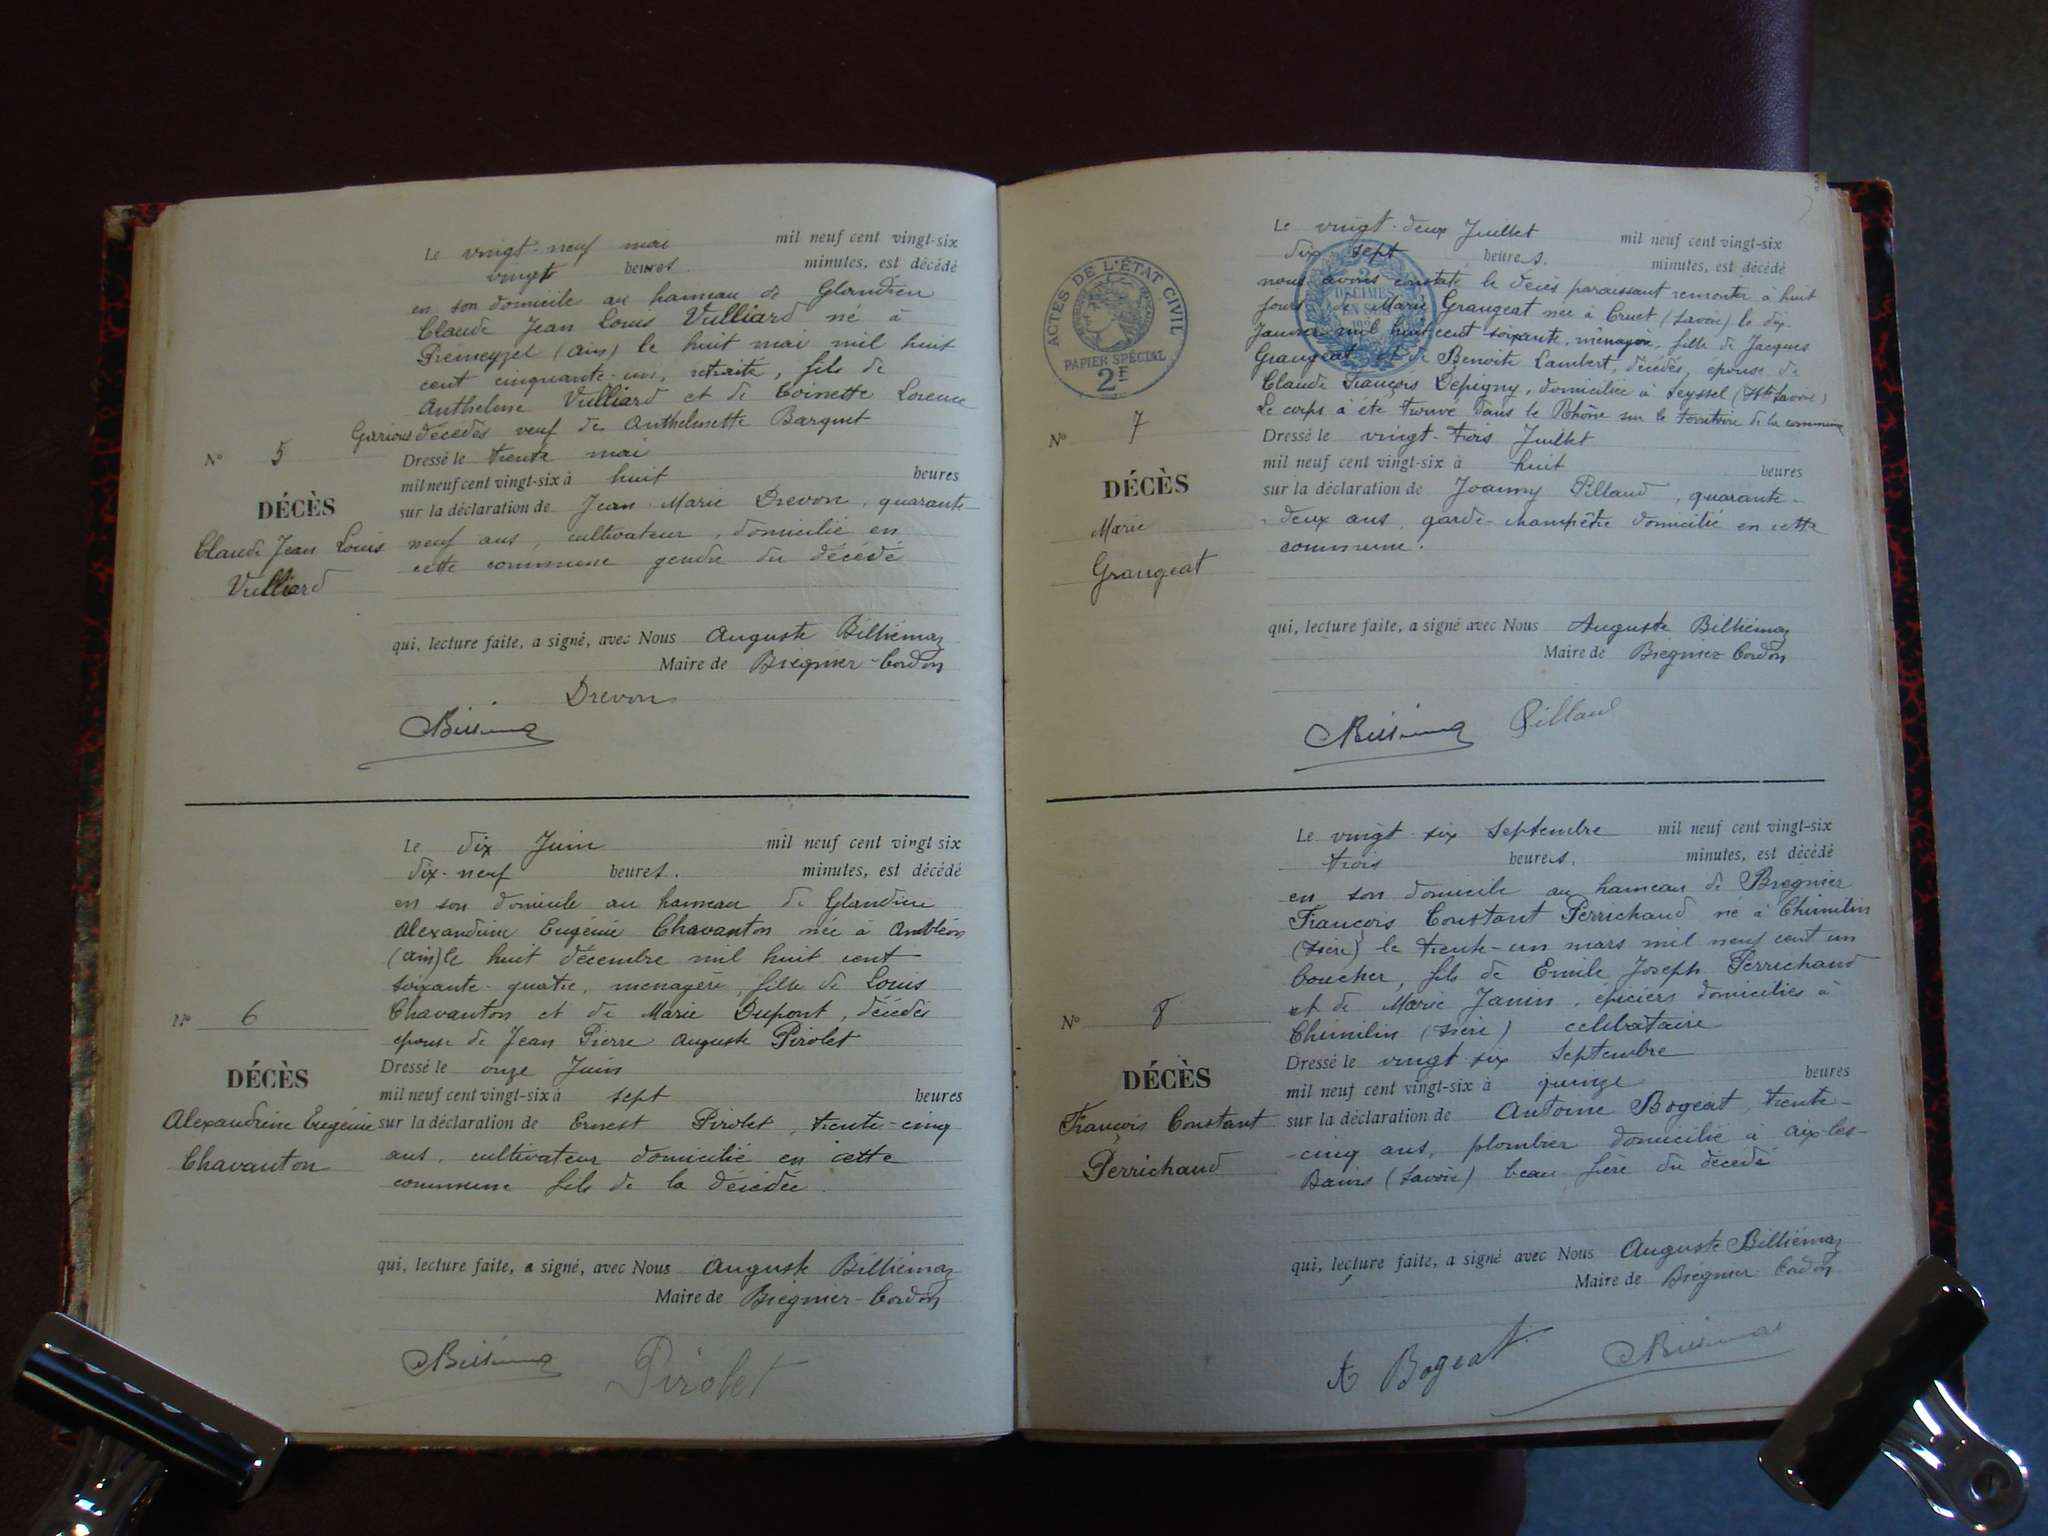 Le vingt-neuf mai mil neuf cent vingt-six
vingt heures minutes, est décédé
en son domicile au hameau de Glandieu
Claude Jean Louis Vulliard né à
Prémeyzel (Ain) le huit mai mil huit
cent cinquante-un, retraité, fils de
Anthelme Vulliard et de Toinette Lorence
décédés veuf de Anthelmette Barquet
N° 5
Dressé le trente mai
mil neuf cent vingt-six à huit heures
DÉCÈS
sur la déclaration de Jean Marie Drevon, quarante-
Claude Jean Louis
neuf ans, cultivateur, domicilié en
Vulliard
cette commune gendre du décédé
qui, lecture faite, a signé, avec Nous Auguste Billiémaz
Maire de Brégnier-Cordon
Drevon
Billiémaz
Le dix Juin mil neuf cent vingt six
dix-neuf heures. minutes, est décédé
en son domicile au hameau de Glandieu
Alexandrine Eugénie Chavanton née à Ambléon
(Ain) le huit décembre mil huit cent
soixante-quatre, ménagère, fille de Louis
N° 6
Chavanton et de Marie Dupont, décédés
épouse de Jean Pierre Auguste Pirolet
Dressé le onze Juin
DÉCÈS
mil neuf cent vingt-six à sept heures
Alexandrine Eugénie
sur la déclaration de Ernest Pirolet, trente-cinq
Chavanton
ans, cultivateur domicilié en cette
commune fils de la décédée.
qui, lecture faite, a signé, avec Nous Auguste Billiémaz
Maire de Brégnier-Cordon
Billiémaz Pirolet
ACTES DE L'ÉTAT CIVIL
PAPIER SPÉCIAL
2F
2
DÉCIMES
EN SUS
Le vingt-deux Juillet mil neuf cent vingt-six
dix sept heures. minutes, est décédé
nous avons constaté le décès paraissant remonter à huit
jours de Marie Grangeat née à Cruet (Savoie) le dix
Janvier mil huit cent soixante, ménagère, fille de Jacques
Grangeat et de Benoite Lambert, décédés, épouse de
Claude François Dépigny, domiciliée à Seyssel (Hte Savoie)
Le corps a été trouvé dans le Rhône sur le territoire de la commune
N° 7
Dressé le vingt-trois Juillet
mil neuf cent vingt-six à huit heures
DÉCÈS
sur la déclaration de Joanny Pillaud, quarante-
Marie
deux ans, garde-champêtre domicilié en cette
Grangeat
commune.
qui, lecture faite, a signé avec Nous Auguste Billiémaz
Maire de Brégnier-Cordon
Billiémaz Pillaud
Le vingt six Septembre mil neuf cent vingt-six
trois heures. minutes, est décédé
en son domicile au hameau de Brégnier
François Constant Perrichaud né à Chimilin
(Isère) le trente-un mars mil neuf cent un
boucher, fils de Emile Joseph Perrichaud
et de Marie Janin, épiciers domiciliés à
N° 8
Chimilin (Isère) célibataire
Dressé le vingt six Septembre
DÉCÈS
mil neuf cent vingt-six à quinze heures
François Constant
sur la déclaration de Antoine Bogeat, trente-
Perrichaud
-cinq ans, plombier domicilié à Aix-les-
Bains (Savoie) beau frère du décédé
qui, lecture faite, a signé avec Nous Auguste Billiémaz
Maire de Brégnier-Cordon
A Bogeat Billiémaz